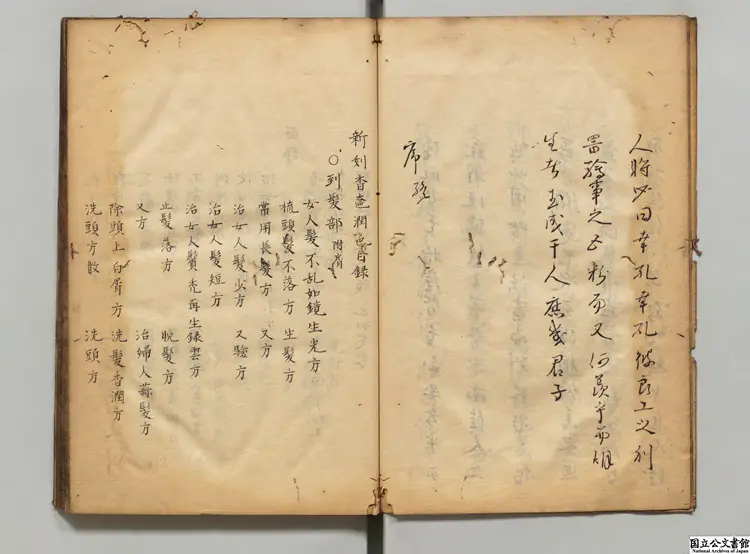 人將必曰幸孔幸孔彼良工之別
畧繪事之五粉而又何羨乎而姐
生者玉成千人應幾君子
序終
新刻香奩潤色目錄
○到髮部 附膏
女人髮不乱如鏡生光方
梳頭髮不落方 生髮方
常用長髮方 又方
治女人髮少方 又驗方
治女人髮短方
治女人鬢禿再生綠雲方
止髮落方 脫髮方
又方 治婦人蒜髮方
除頭上白屑方 洗髮香潤方
洗頭方散 洗頭方
国立公文書館
National Archives of Japan